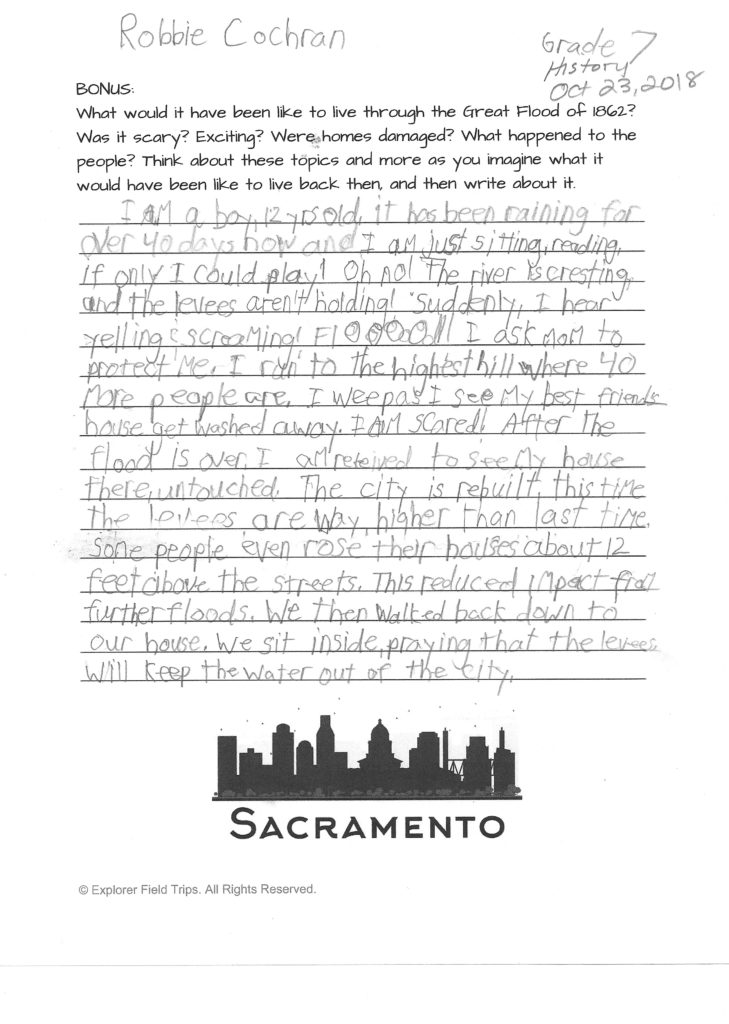 Robbie Cochran
Grade 7
History
Oct 23, 2018
BONUS:
What would it have been like to live through the Great Flood of 1862?
Was it scary? Exciting? Were homes damaged? What happened to the
people? Think about these topics and more as you imagine what it
would have been like to live back then, and then write about it.
I AM a boy, 12 yrs old, it has been raining for
over 40 days now and I am just sitting, reading,
if only I could play! Oh no! The river is cresting,
and the levees aren't holding! Suddenly, I hear
yelling & screaming! FlOOOOd!! I ask mom to
protect me. I run to the highest hill where 40
more people are. I weep as I see my best friends
house get washed away. I AM scared! After the
flood is over, I am releived to see my house
there, untouched. The city is rebuilt, this time
the levees are way higher than last time.
Some people even rose their houses about 12
feet above the streets. This reduced impact from
further floods. We then walked back down to
our house. We sit inside, praying that the levees
will keep the water out of the city.
SACRAMENTO
© Explorer Field Trips. All Rights Reserved.